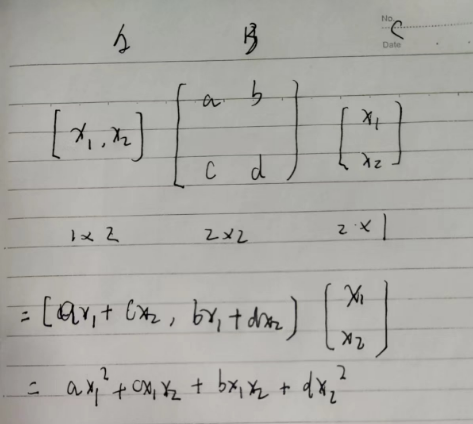 A B C
No.
Date
[x₁, x₂] [a b; c d] [x₁; x₂]
1x2 2x2 2x1
= [ax₁ + cx₂, bx₁ + dx₂] [x₁; x₂]
= ax₁² + cx₁x₂ + bx₁x₂ + dx₂²